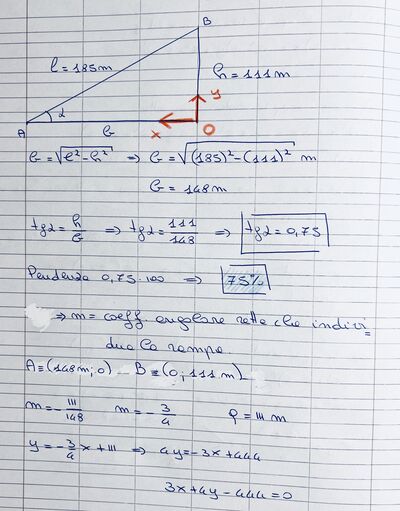 B
l = 185m
h = 111m
y
A
α
b
x
O
b = √l² - h² ⇒ b = √(185)² - (111)² m
b = 148m
tgα = h/b ⇒ tgα = 111/148 ⇒ tgα = 0,75
Pendenza 0,75·100 ⇒ 75%
⇒ m = coeff. angolare retta che indivi=
dua la rampa.
A≡(148m; 0) – B≡(0; 111m)
m = - 111/148 m = - 3/4 q = 111 m
y = - 3/4 x + 111 ⇒ 4y = -3x + 444
3x + 4y - 444 = 0